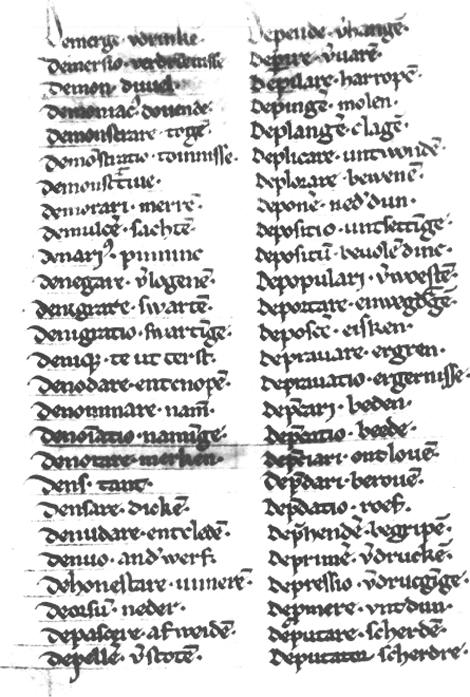 Demerge · vdrinke ·
Demersio · verdrēnisse
Demon · duuel ·
Demoniac᷒ · douende ·
Demonstrare · togē ·
Demōstratio · tonnisse ·
Demonstratiue ·
Demorari · merrē ·
Demulcē · sachtē ·
Denarij᷒ · pinninc
Denegare · v̄logenē ·
Denigrare · swartē ·
Denigratio · swartīge ·
Deniqꝫ · te ut terst ·
Denodare · entcnopē ·
Denominare · namē ·
Denoīatio · namīge ·
Denotare · merken ·
Dens · tant ·
Densare · dickē ·
Denudare · entcledē ·
Denuo · and̄werf ·
Dehonestare · unnerē ·
Deorsū · neder ·
Depascere · af weidē ·
Depellē · v̄stotē ·
Depende · v̄hangē ·
Depilare · harropē ·
Depingē · molen ·
Deplangē · clagē ·
Deplicare · untwīdē ·
Deplorare · bewenē ·
Deponē · ned̄ dun ·
Depositio · untsettīge ·
Depositū · beuolē dinc ·
Depopulari · v̄woestē ·
Deportare · enwegdēgē ·
Deposcē · eisken ·
Deprauare · ergren ·
Deprauatio · ergernisse ·
Dep̄cari · beden ·
Dep̄catio · bede ·
Dep̄ciari · ontlouē ·
Dep̄dari · berouē ·
Dep̄datio · roef ·
Dep̄hendē · begripē ·
Deprimē · v̄druckē ·
Depressio · v̄drucgīge ·
Deputare · scherdē ·
Deputator · scherdre ·